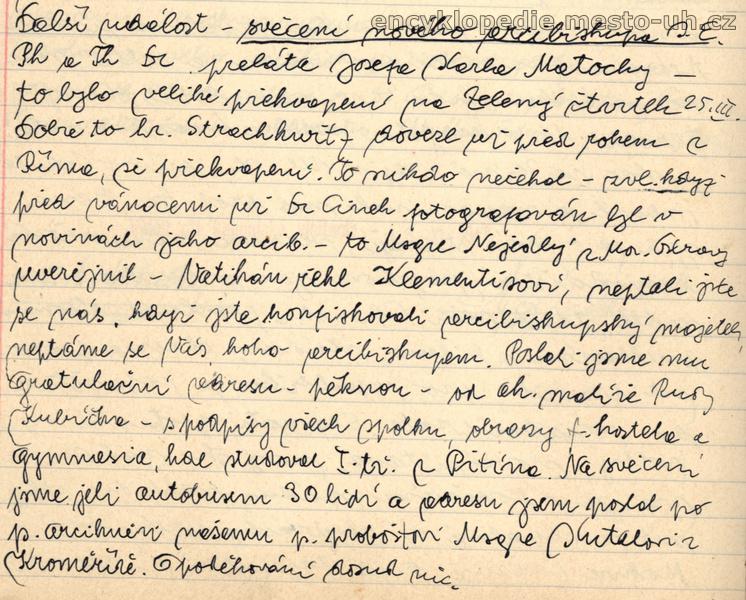 encyklopedie.mesto-uh.cz
Další událost - svěcení nového arcibiskupa J. E.
Ph a Th Dr. preláta Josefa Karla Matochy -
to bylo veliké překvapení na Zelený čtvrtek 25.III.
Dobře to hr. Strachwitz dovezl už před rokem z
Říma, že překvapení. To nikdo nečekal - zvl. když
před vánocemi už Dr Cinek fotografován byl v
novinách jako arcib. - to Msgre Nejedlý z Mor. Ostravy
uveřejnil - Vatikán řekl Klementisovi, neptali jste
se nás, když jste konfiskovali arcibiskupský majetek,
neptáme se Vás koho arcibiskupem. Poslali jsme mu
gratulační adresu - pěknou - od ak. malíře Rudy
Kubíčka - s podpisy všech spolků, obrazy f. kostela a
gymnasia, kde studoval I. tř. z Pitína. Na svěcení
jsme jeli autobusem 30 lidí a adresu jsem poslal po
p. arciknězi našemu p. proboštovi Msgre Kutalovi z
Kroměříže. O poděkování dosud nic.